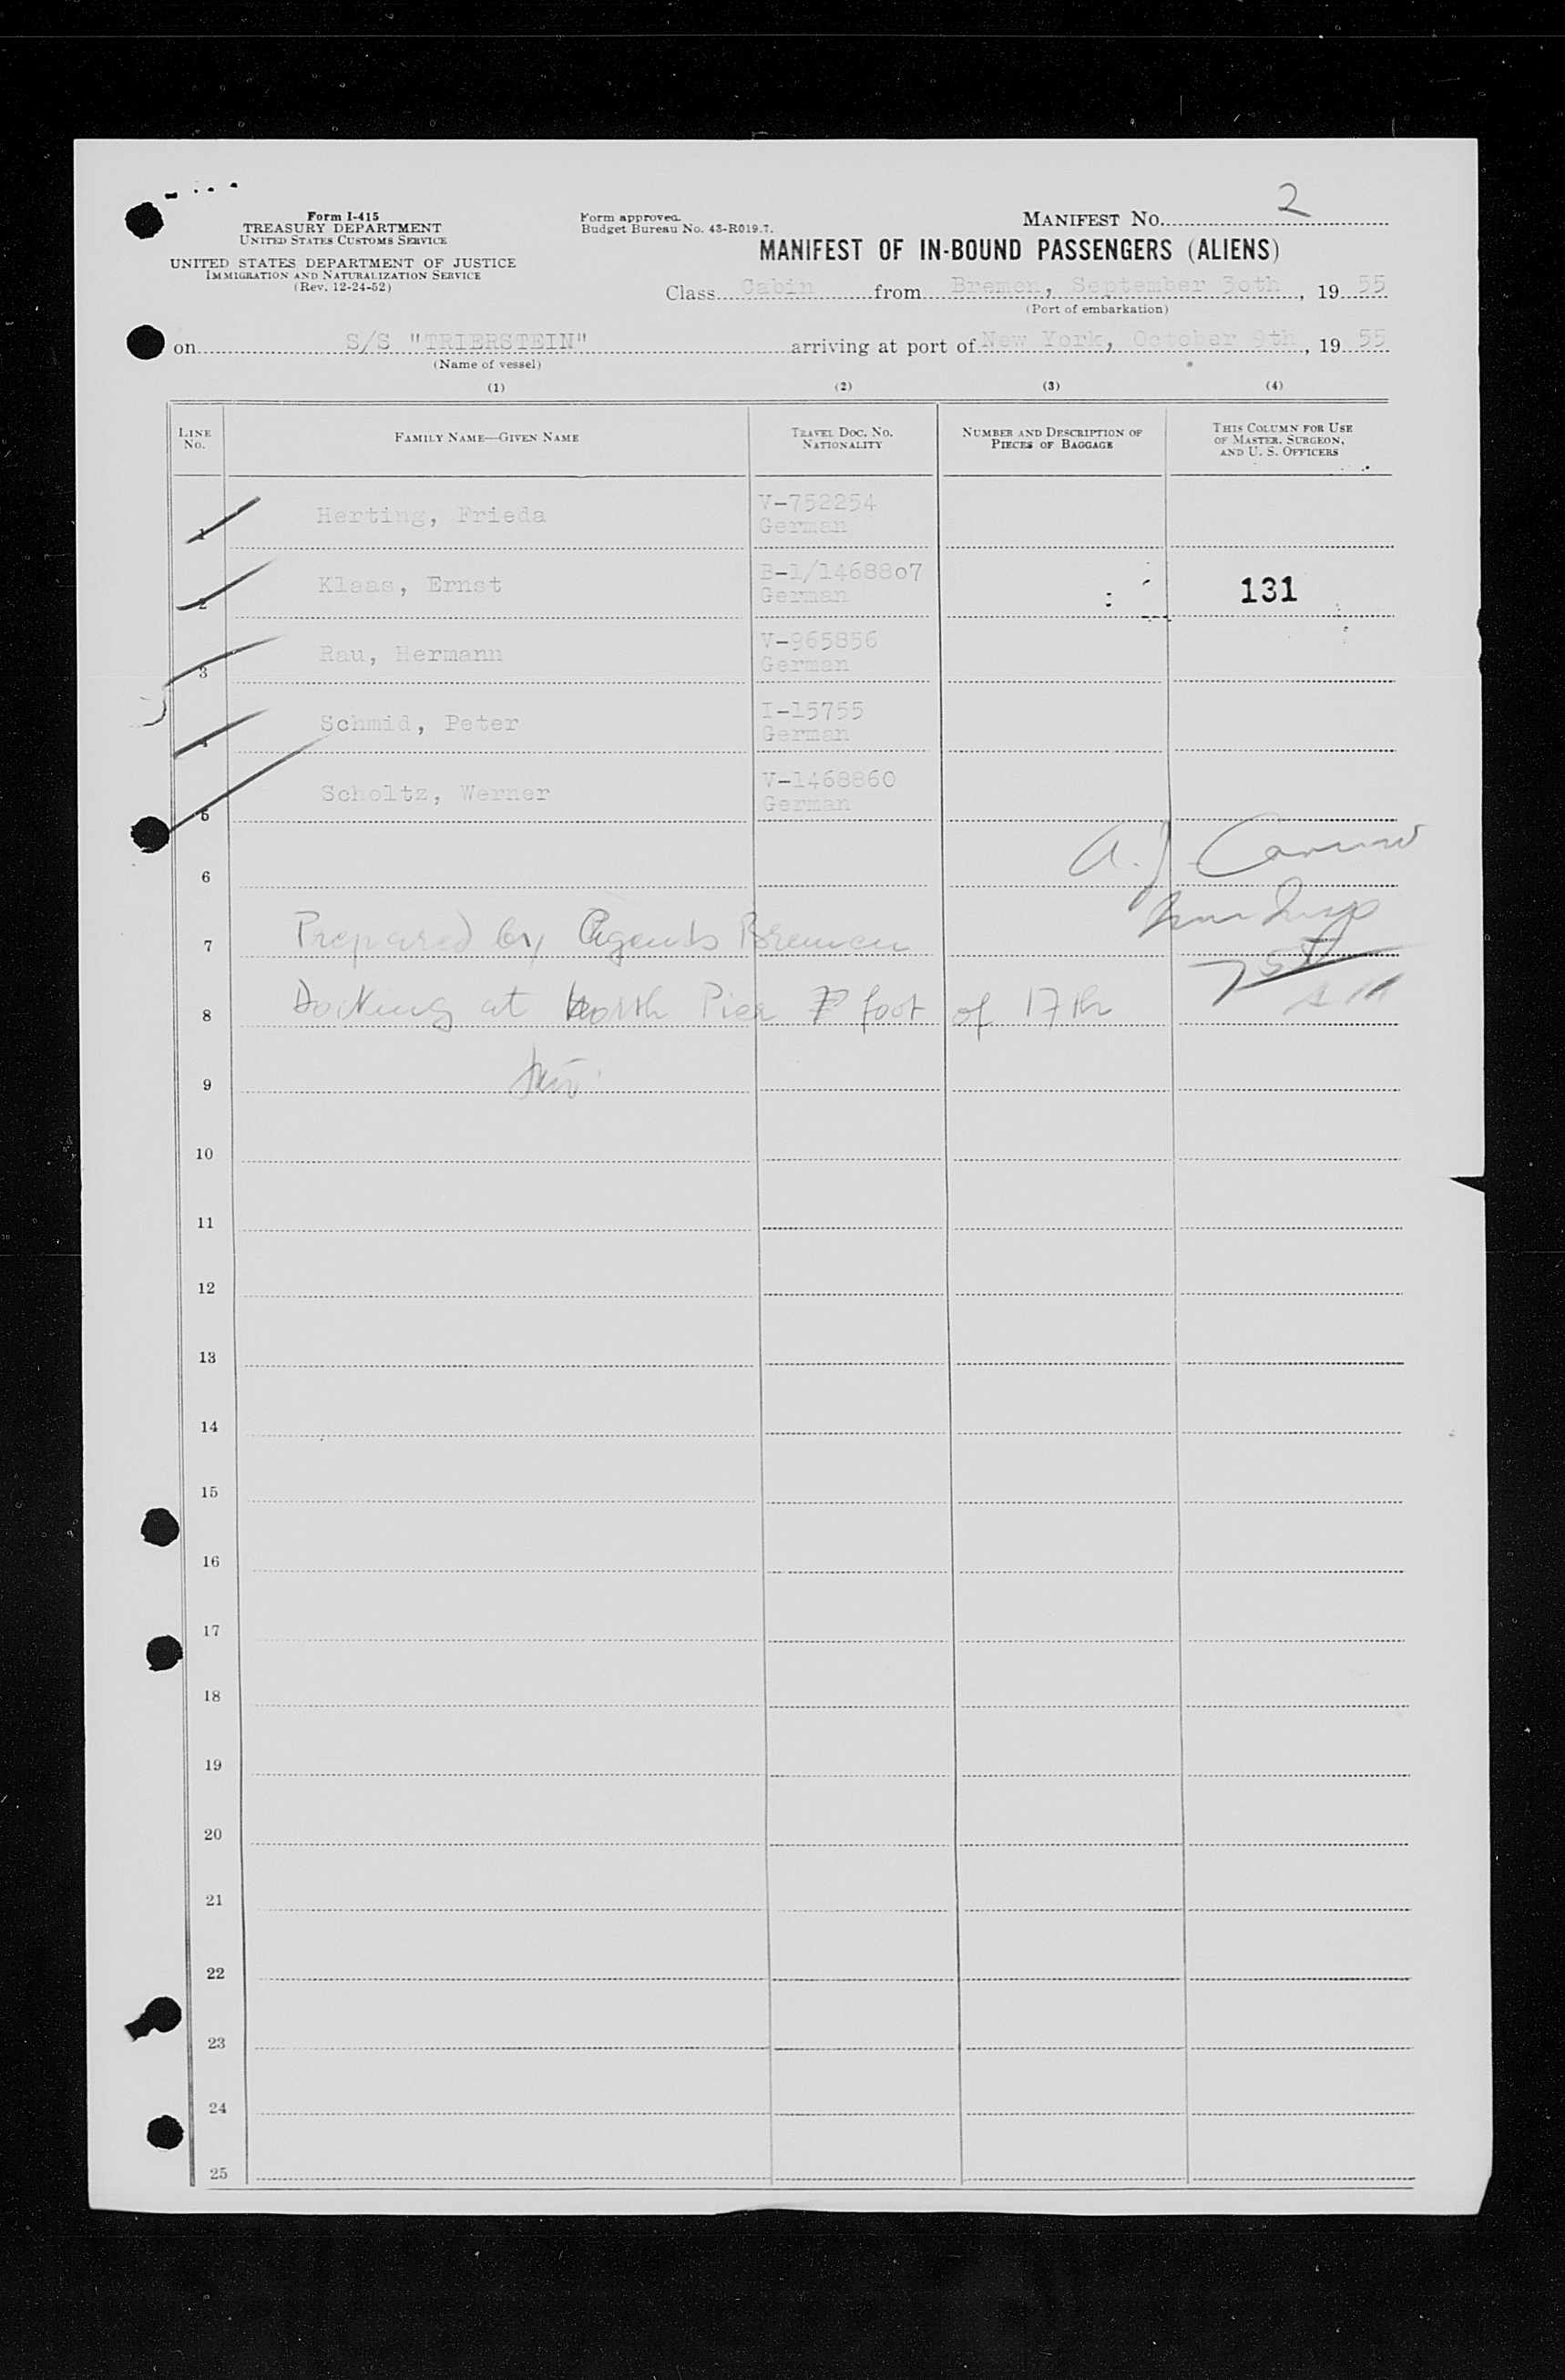 Form I-415
TREASURY DEPARTMENT
UNITED STATES CUSTOMS SERVICE
UNITED STATES DEPARTMENT OF JUSTICE
IMMIGRATION AND NATURALIZATION SERVICE
(Rev. 12-24-52)
Form approved.
Budget Bureau No. 43-R019.7.
MANIFEST NO. 2
MANIFEST OF IN-BOUND PASSENGERS (ALIENS)
Class Cabin from Bremen, September 3oth, 19 55
(Port of embarkation)
on S/S "TRIERSTEIN" arriving at port of New York, October 9th, 19 55
(Name of vessel)
(1) (2) (3) (4)
LINE NO.
FAMILY NAME—GIVEN NAME
TRAVEL DOC. NO. NATIONALITY
NUMBER AND DESCRIPTION OF PIECES OF BAGGAGE
THIS COLUMN FOR USE OF MASTER, SURGEON, AND U. S. OFFICERS
1 Herting, Frieda V-752254 German
2 Klaas, Ernst B-1/14688o7 German 131
3 Rau, Hermann V-965856 German
4 Schmid, Peter I-15755 German
5 Scholtz, Werner V-1468860 German
6 A. J.
7 Prepared by Agents Bremen
8 Docking at North Pier foot of 17th
9
10
11
12
13
14
15
16
17
18
19
20
21
22
23
24
25